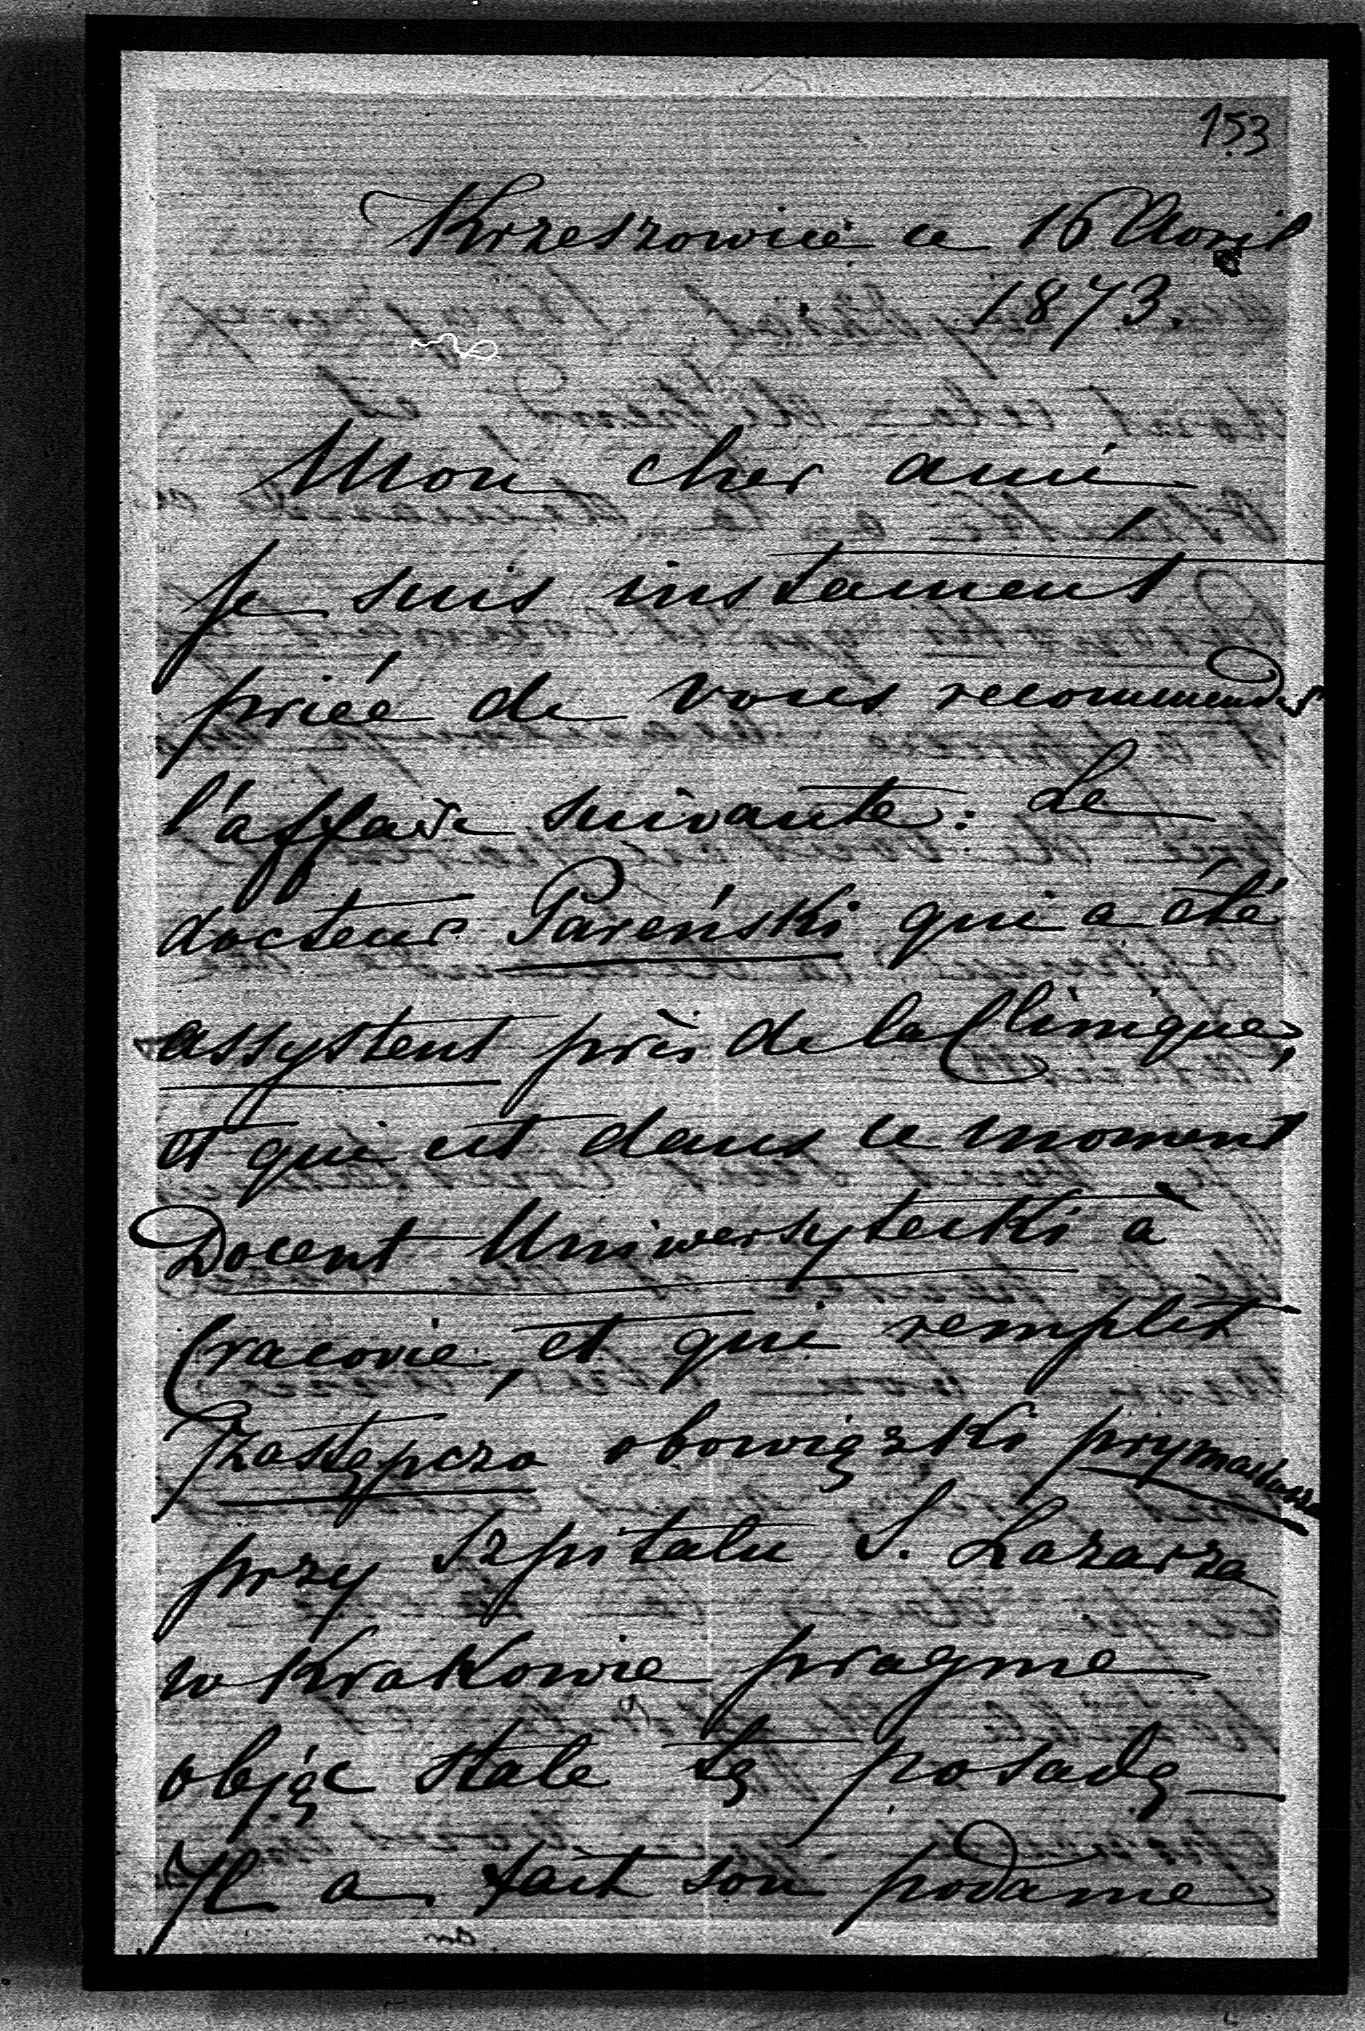 153
Krzeszowice ce 16 Avril
1873.
Mon cher ami
Je suis instament
priée de vous recommender
l'affaire suivante: Le
docteur Pareński qui a été
assystent près de la Clinique,
et qui est dans ce moment
Docent Uniwersytecki à
Cracovie, et qui remplit
zastępczo obowiązki prymariusza
przy Szpitalu S. Lazarza
w Krakowie pragnie
objąc stale tę posadę
Il a fait son podanie